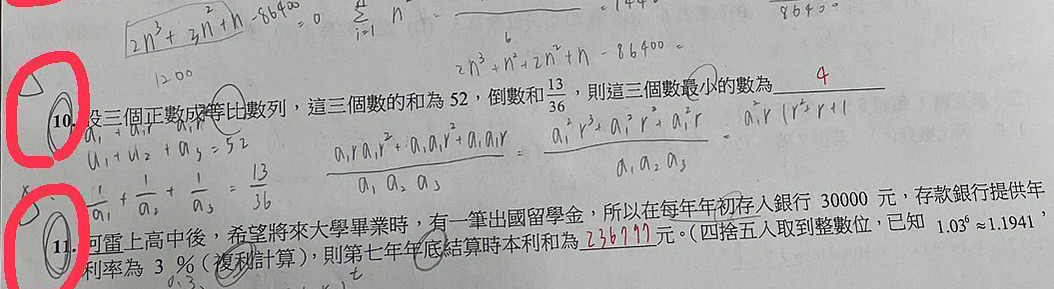 2n³+3n²+n-86400=0
1200
n
∑ n²
i=1
6
2n³+n²+2n²+n-86400=
86400
10. 設三個正數成等比數列，這三個數的和為 52，倒數和 13/36，則這三個數最小的數為 4
a₁+a₂+a₃=52
1/a₁ + 1/a₂ + 1/a₃ = 13/36
a₁r a₁r²+a₁a₁r²+a₁a₁r / a₁a₂a₃ = a₁²r³+a₁²r²+a₁²r / a₁a₂a₃ = a₁²r(r²+r+1
11. 可雷上高中後，希望將來大學畢業時，有一筆出國留學金，所以在每年年初存入銀行 30000 元，存款銀行提供年
利率為 3 %（複利計算），則第七年年底結算時本利和為 236777 元。（四捨五入取到整數位，已知 1.03⁶≈1.1941，